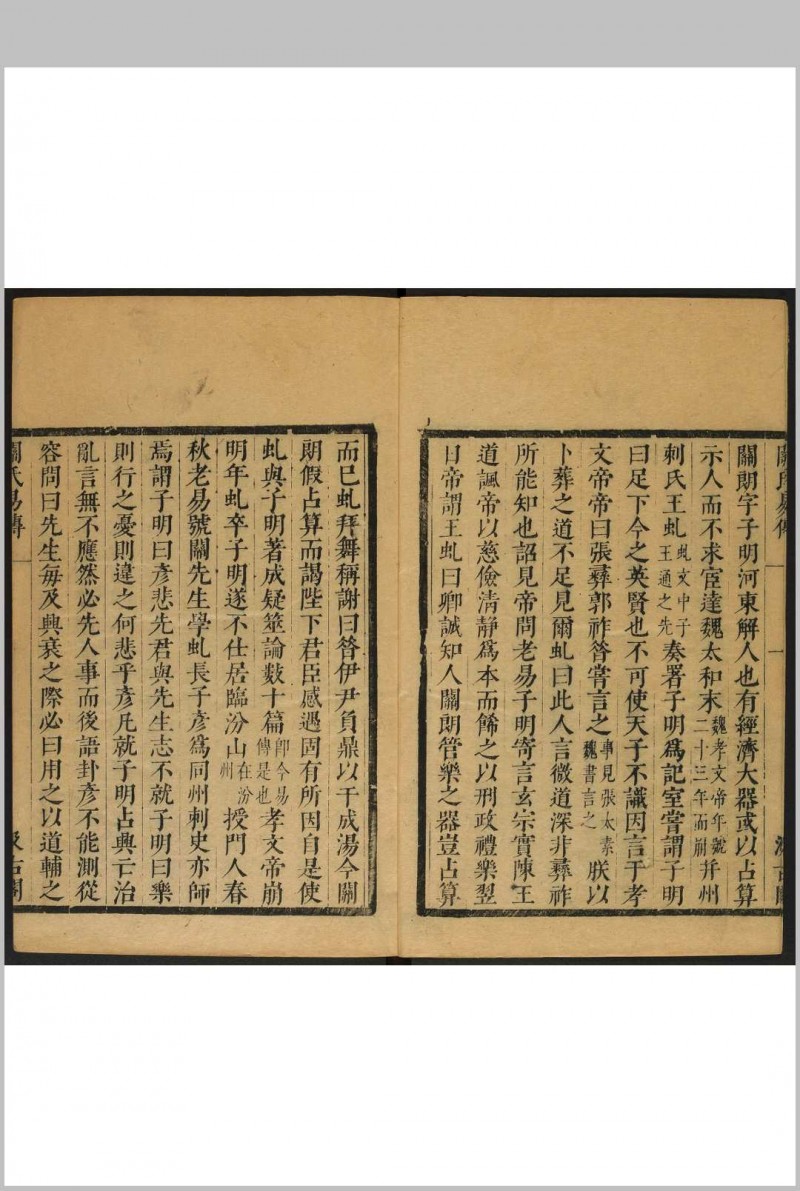 關氏易傳 一 汲古閣
關朗字子明河東解人也有經濟大器或以占算
示人而不求宦達魏太和末魏孝文帝年號二十三年而崩并州
刺氏王虬虬文中子王通之先奏署子明爲記室嘗謂子明
曰足下今之英賢也不可使天子不識因言于孝
文帝帝曰張彝郭祚咎嘗言之事見張太素魏書言之朕以
卜葬之道不足見爾虬曰此人言微道深非彝祚
所能知也詔見帝問老易子明寄言玄宗實陳王
道諷帝以慈儉清靜爲本而餙之以刑政禮樂翌
日帝謂王虬曰卿誠知人關朗管樂之器豈占算
而已虬拜舞稱謝曰咎伊尹負鼎以干成湯今關
朗假占算而謁陛下君臣感遇固有所因自是使
虬與子明著成疑筮論數十篇卽今易傳是也孝文帝崩
明年虬卒子明遂不仕居臨汾山在汾州授門人春
秋老易號關先生學虬長子彥爲同州刺史亦師
焉謂子明曰彥悲先君與先生志不就子明曰樂
則行之憂則違之何悲乎彥凡就子明占興亡治
亂言無不應然必先人事而後語卦彥不能測從
容問曰先生每及興衰之際必曰用之以道輔之
關氏易傳 一 汲古閣